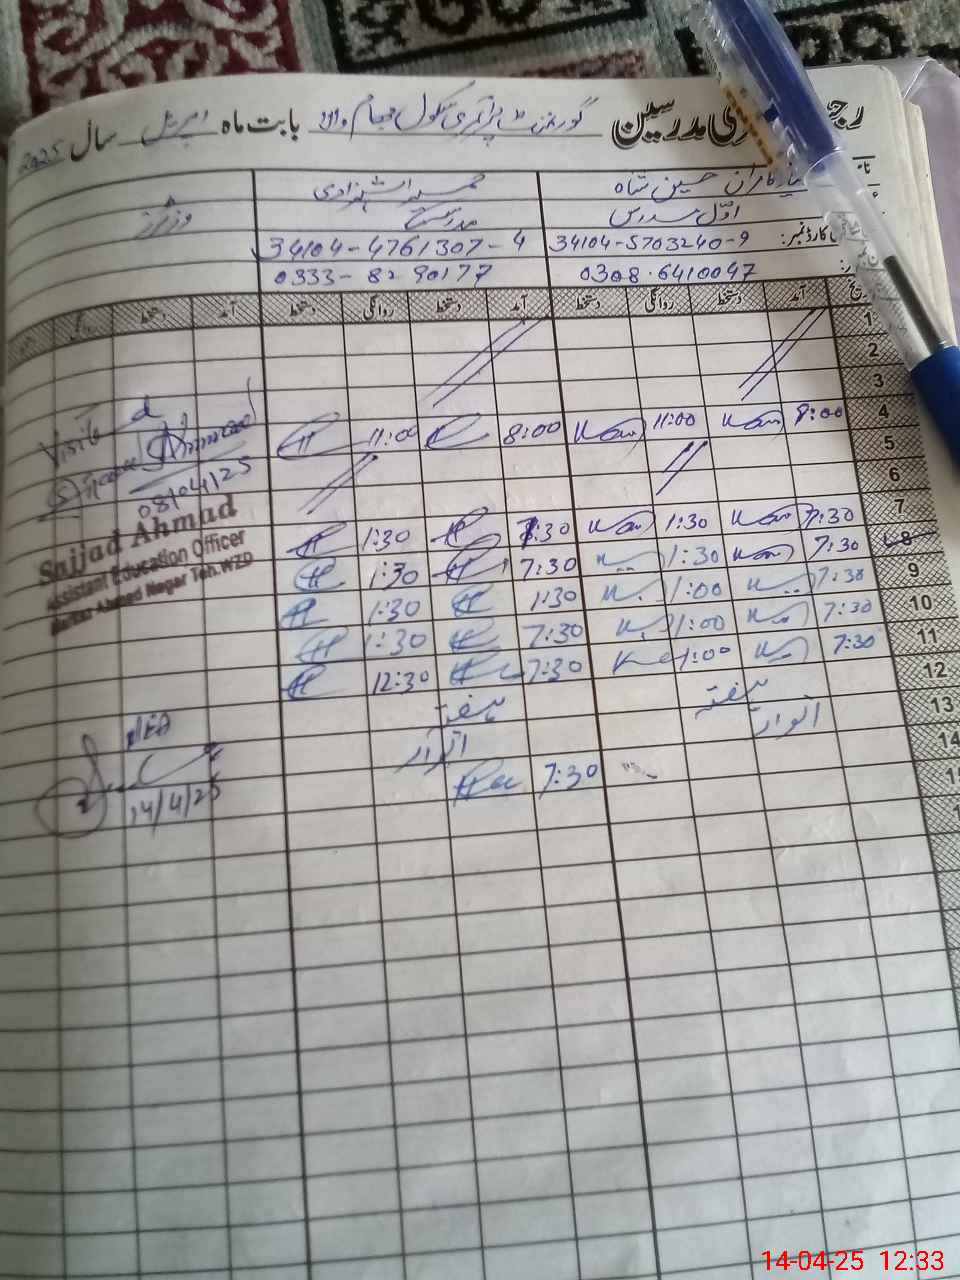 بابت ماہ اپریل سال 2025
گورنمنٹ پرائمری سکول
مدرسین
کامران حسین شاہ
شہزادی
وزیٹرز
اول مدرس
مدرسہ
کارڈ نمبر: 34104-5703240-9 34104-4761307-4
0308-6410047 0333-8290177
آمد دستخط روانگی دستخط آمد دستخط روانگی دستخط آمد دستخط روانگی
1
2
3
4 8:00 11:00 8:00 11:00
5
6
7 7:30 1:30 7:30 1:30
8 7:30 1:30 7:30 1:30
9 7:30 1:00 1:30 1:30
10 7:30 1:00 7:30 1:30
11 7:30 1:00 7:30 12:30
12 ہفتہ ہفتہ
13 اتوار اتوار
14 7:30
Visited
08/04/25
Sajjad Ahmad
Assistant Education Officer
Markaz Ahmad Nagar Teh. WZD
AEO
14/4/25
14-04-25 12:33